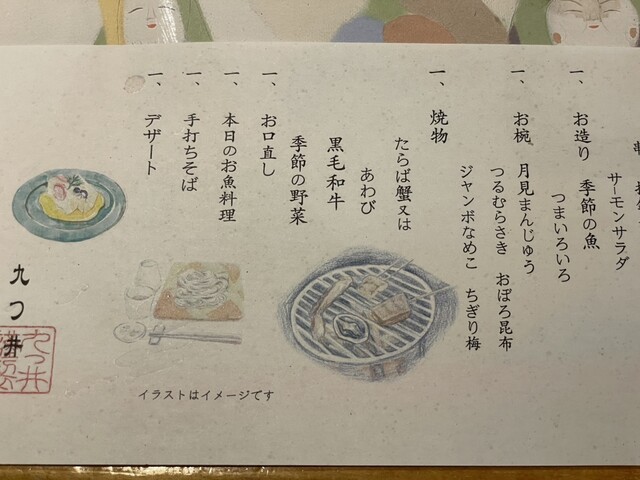 サーモンサラダ
一、お造り 季節の魚
つまいろいろ
一、お椀 月見まんじゅう
つるむらさき おぼろ昆布
ジャンボなめこ ちぎり梅
一、焼物
たらば蟹又は
あわび
黒毛和牛
季節の野菜
一、お口直し
一、本日のお魚料理
一、手打ちそば
一、デザート
九つ井
イラストはイメージです